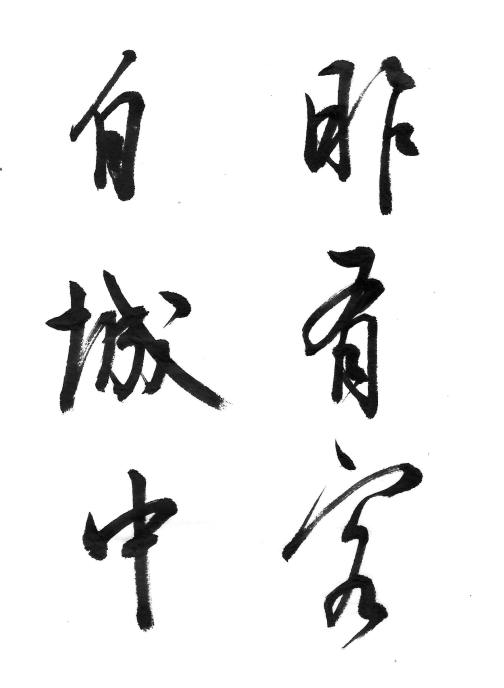 昨有客
自城中